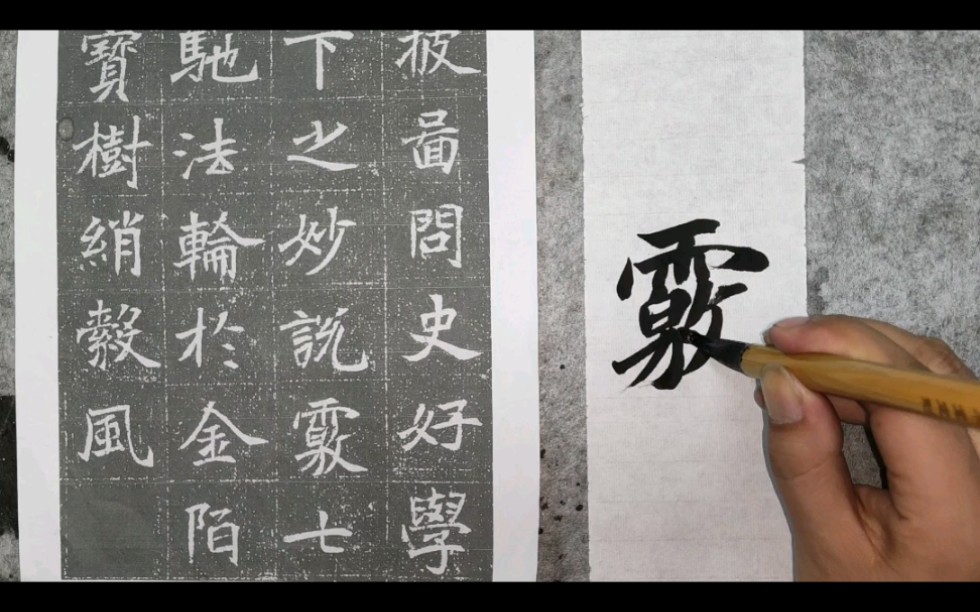 披啚問史好學
下之妙說覈七
馳法輪於金陌
寶樹綃縠風
覈